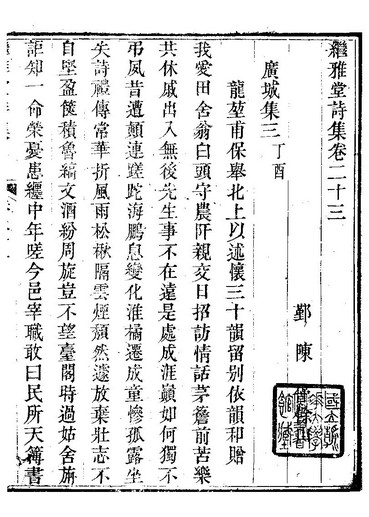 繼雅堂詩集卷二十三
鄞陳
廣城集三丁酉
龍堇甫保舉北上以述懷三十韻留别依韻和贈
我愛田舍翁白頭守農阡親交日招訪情話茅簷前苦樂
共休戚出入無後先生事不在遠是處成涯巔如何獨不
弔夙昔遭顛連蹉跎海鵬息變化淮橘遷成童慘孤露坐
失詩禮傳常華折風雨松楸隔雲煙頹然遽放棄壯志不
自堅盈篋積魯縞文酒紛周旋豈不望臺閣時過姑舍旃
詎知一命榮憂患纏中年嗟今邑宰職敢曰民所天簿書